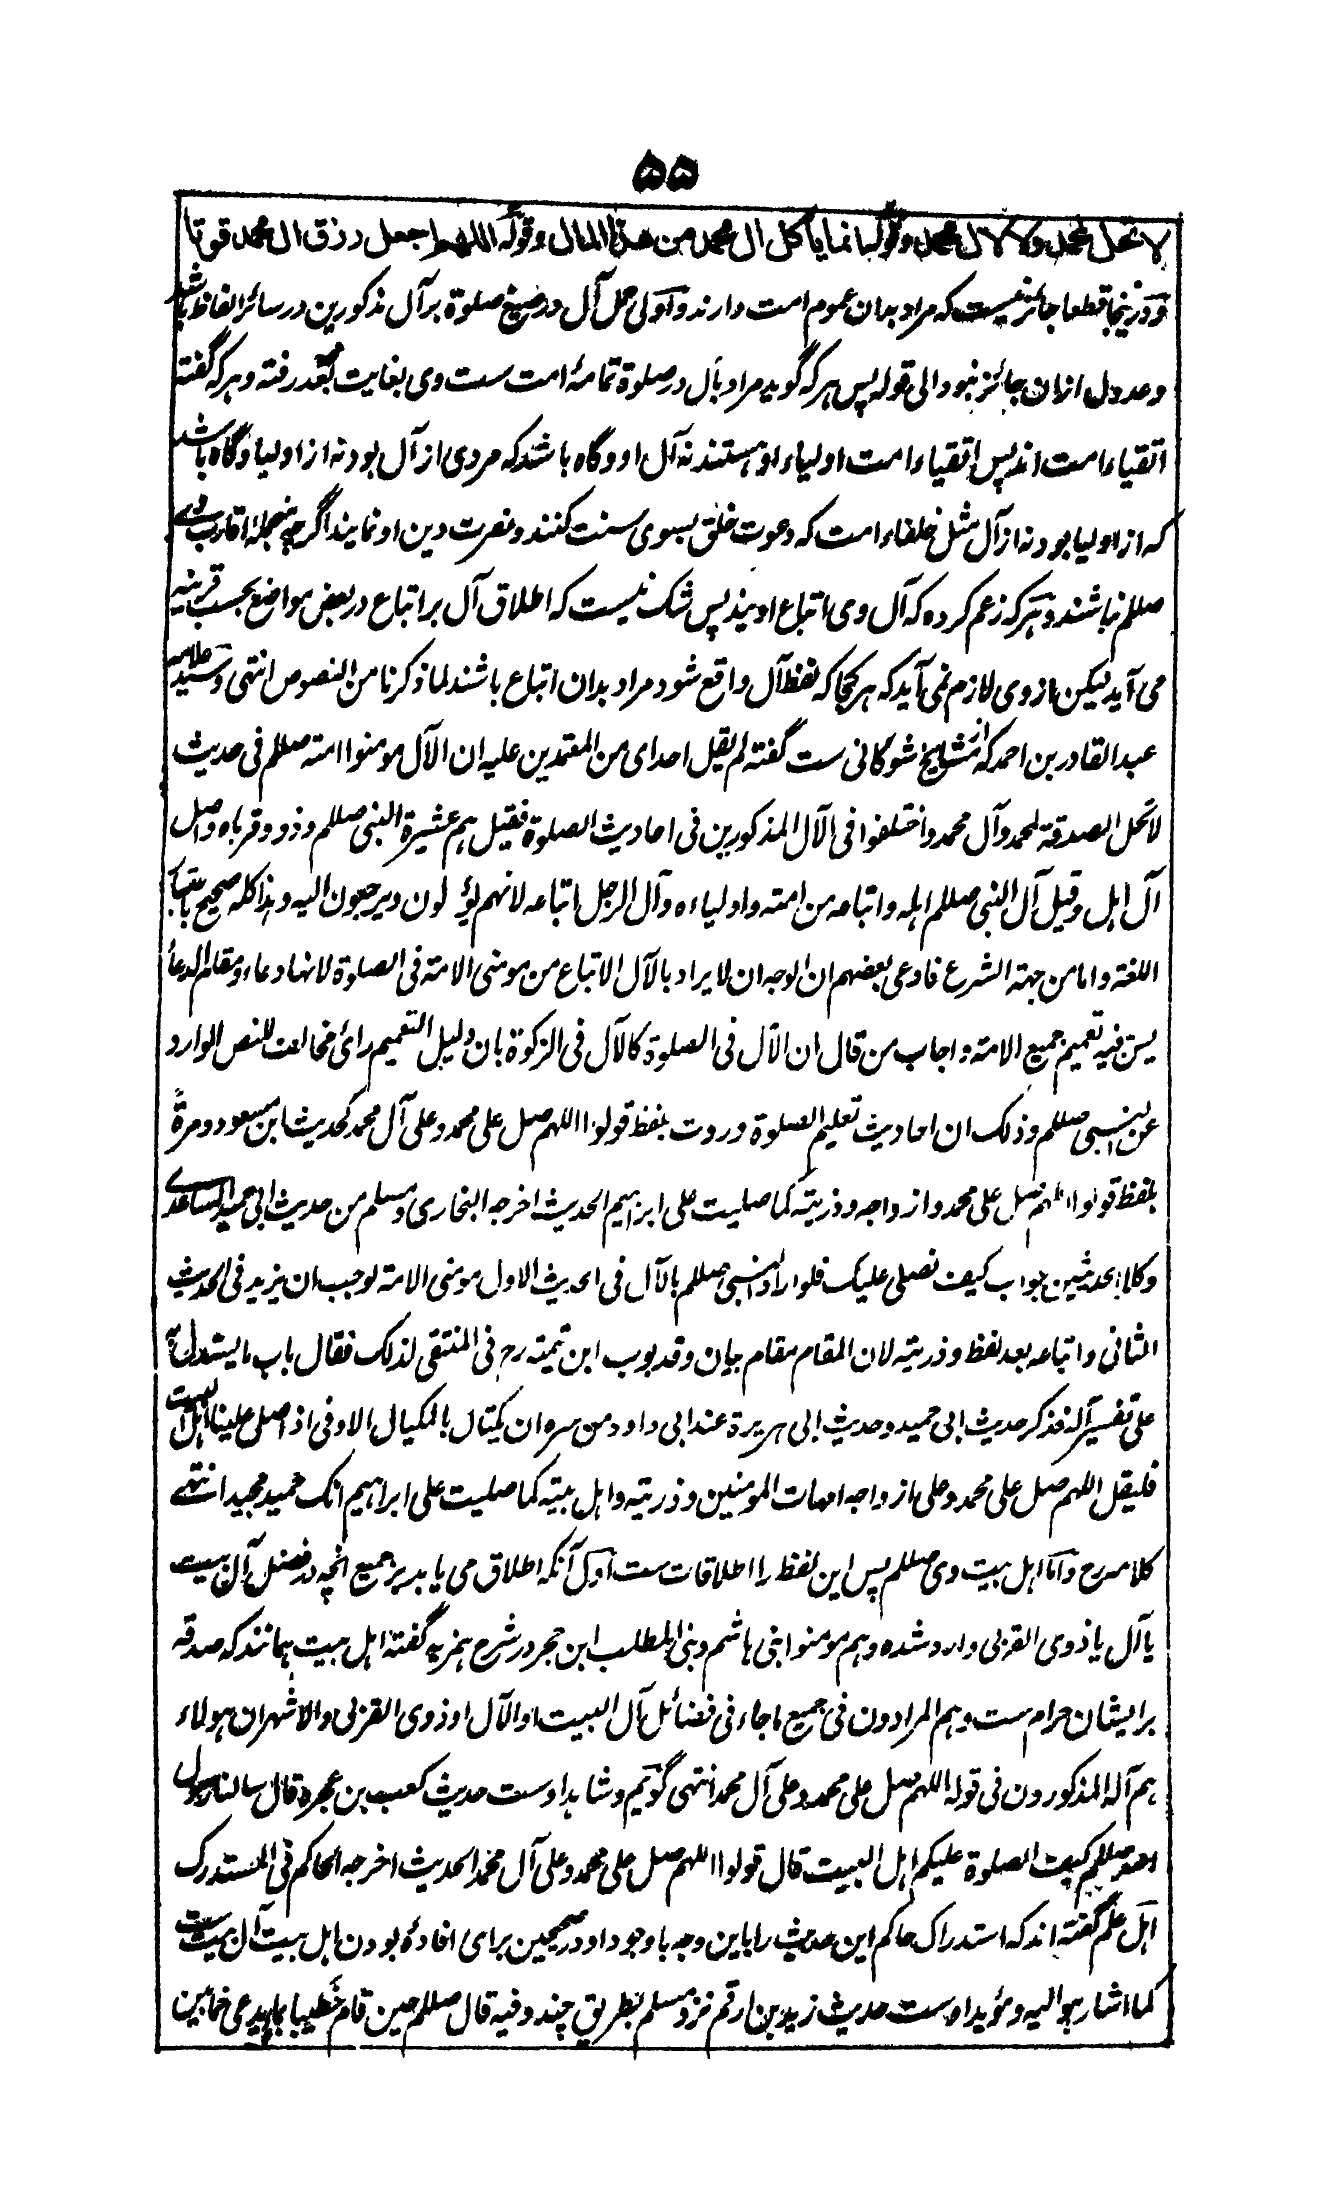 ۵۵
لا تحل لمحمد ولا لال محمد وقوله انما یاکل ال محمد من هذا المال وقوله اللهم اجعل رزق ال محمد قوتا
ودرینجا قطعا جائز نیست که مراد بدان عموم امت دارند واولی حمل آل در صیغ صلوة بر آل مذکورین در سائر الفاظ باشد
وعدول ازان جائز نبود الی قوله پس هر که گوید مراد بآل در صلوة تمامۀ امت ست وی بغایت بعد رفته و هر که گفته
اتقیاء امت اند پس اتقیاء امت اولیاء او هستند نه آل او وگاه باشد که مردی از آل بود نه از اولیا وگاه باشد
که از اولیا بود نه از آل مثل خلفاء امت که دعوت خلق بسوی سنت کنند و نصرت دین او نمایند اگرچه منجملۀ اقارب وے
صللم نباشند و هر که زعم کرده که آل وی اتباع اویند پس شک نیست که اطلاق آل بر اتباع در بعض مواضع بحسب قرینه
می آید لیکن ازوی لازم نمی آید که هر کجا که لفظ آل واقع شود مراد بدان اتباع باشند لما ذکرنا من النصوص انتهی و سید علامه
عبد القادر بن احمد که از مشایخ شوکانی ست گفته لم یقل احد ای من المعتمدین علیه ان الآل مومنوا امته صللم فی حدیث
لا تحل الصدقة لمحمد وآل محمد واختلفوا فی الآل المذکورین فی احادیث الصلوة فقیل هم عشیرة النبی صللم وذوو قرباه واصل
آل اهل وقیل آل النبی صللم اهله واتباعه من امته واولیاءه وآل الرجل اتباعه لانهم یؤلون ویرجعون الیه وهذا کله صحیح باعتبار
اللغة واما من جهة الشرع فادعی بعضهم ان الوجه ان لا یراد بالآل الاتباع من مومنی الامة فی الصلوة لانها دعاء ومقام الدعاء
یسن فیه تعمیم جمیع الامة واجاب من قال ان الآل فی الصلوة کالآل فی الزکوة بان دلیل التعمیم رای مخالف للنص الوارد
عن النبی صللم وذلک ان احادیث تعلیم الصلوة وردت بلفظ قولوا اللهم صل علی محمد وعلی آل محمد کحدیث ابن مسعود ومرة
بلفظ قولوا اللهم صل علی محمد وازواجه وذریته کما صلیت علی ابراهیم الحدیث اخرجه البخاری ومسلم من حدیث ابی حمید الساعدے
وکلا الحدیثین جواب کیف نصلی علیک فلو اراد النبی صللم بالآل فی الحدیث الاول مومنی الامة لوجب ان یزید فی الحدیث
الثانی واتباعه بعد لفظ وذریته لان المقام مقام بیان وقد بوب ابن تیمیة رح فی المنتقی لذلک فقال باب ما یستدل به
علی تفسیر آله فذکر حدیث ابی حمید وحدیث ابی هریرة عند ابی داود من سره ان یکتال بالمکیال الاوفی اذا صلی علینا اهل البیت
فلیقل اللهم صل علی محمد وعلی ازواجه امهات المومنین وذریته واهل بیته کما صلیت علی ابراهیم انک حمید مجید انتهے
کلامه رح واما اهل بیت وی صللم پس این لفظ را اطلاقات ست اول آنکه اطلاق می یابد بر جمیع انچه در فضل آل بیت
یا آل یا ذوی القربی وارد شده وهم مومنوا بنی هاشم وبنی المطلب ابن حجر در شرح همزیه گفته اهل بیت همانند که صدقه
بر ایشان حرام ست وهم المرادون فی جمیع ما جاء فی فضائل آل البیت او الآل او ذوی القربی والاشهر ان هولاء
هم آله المذکورون فی قوله اللهم صل علی محمد وعلی آل محمد انتهی گویم وشاهد اوست حدیث کعب بن عجرة قال سالنا رسول
الله صللم کیف الصلوة علیکم اهل البیت قال قولوا اللهم صل علی محمد وعلی آل محمد الحدیث اخرجه الحاکم فی المستدرک
اهل علم گفته اند که استدراک حاکم این حدیث را باین وجه باوجود او در صحیحین برای افادۀ بودن اهل بیت آل بیت ست
کما اشار هو الیه ومؤید اوست حدیث زید بن ارقم نزد مسلم بطریق چند وفیه قال صللم حین قام خطیبا بماء یدعی خما بین